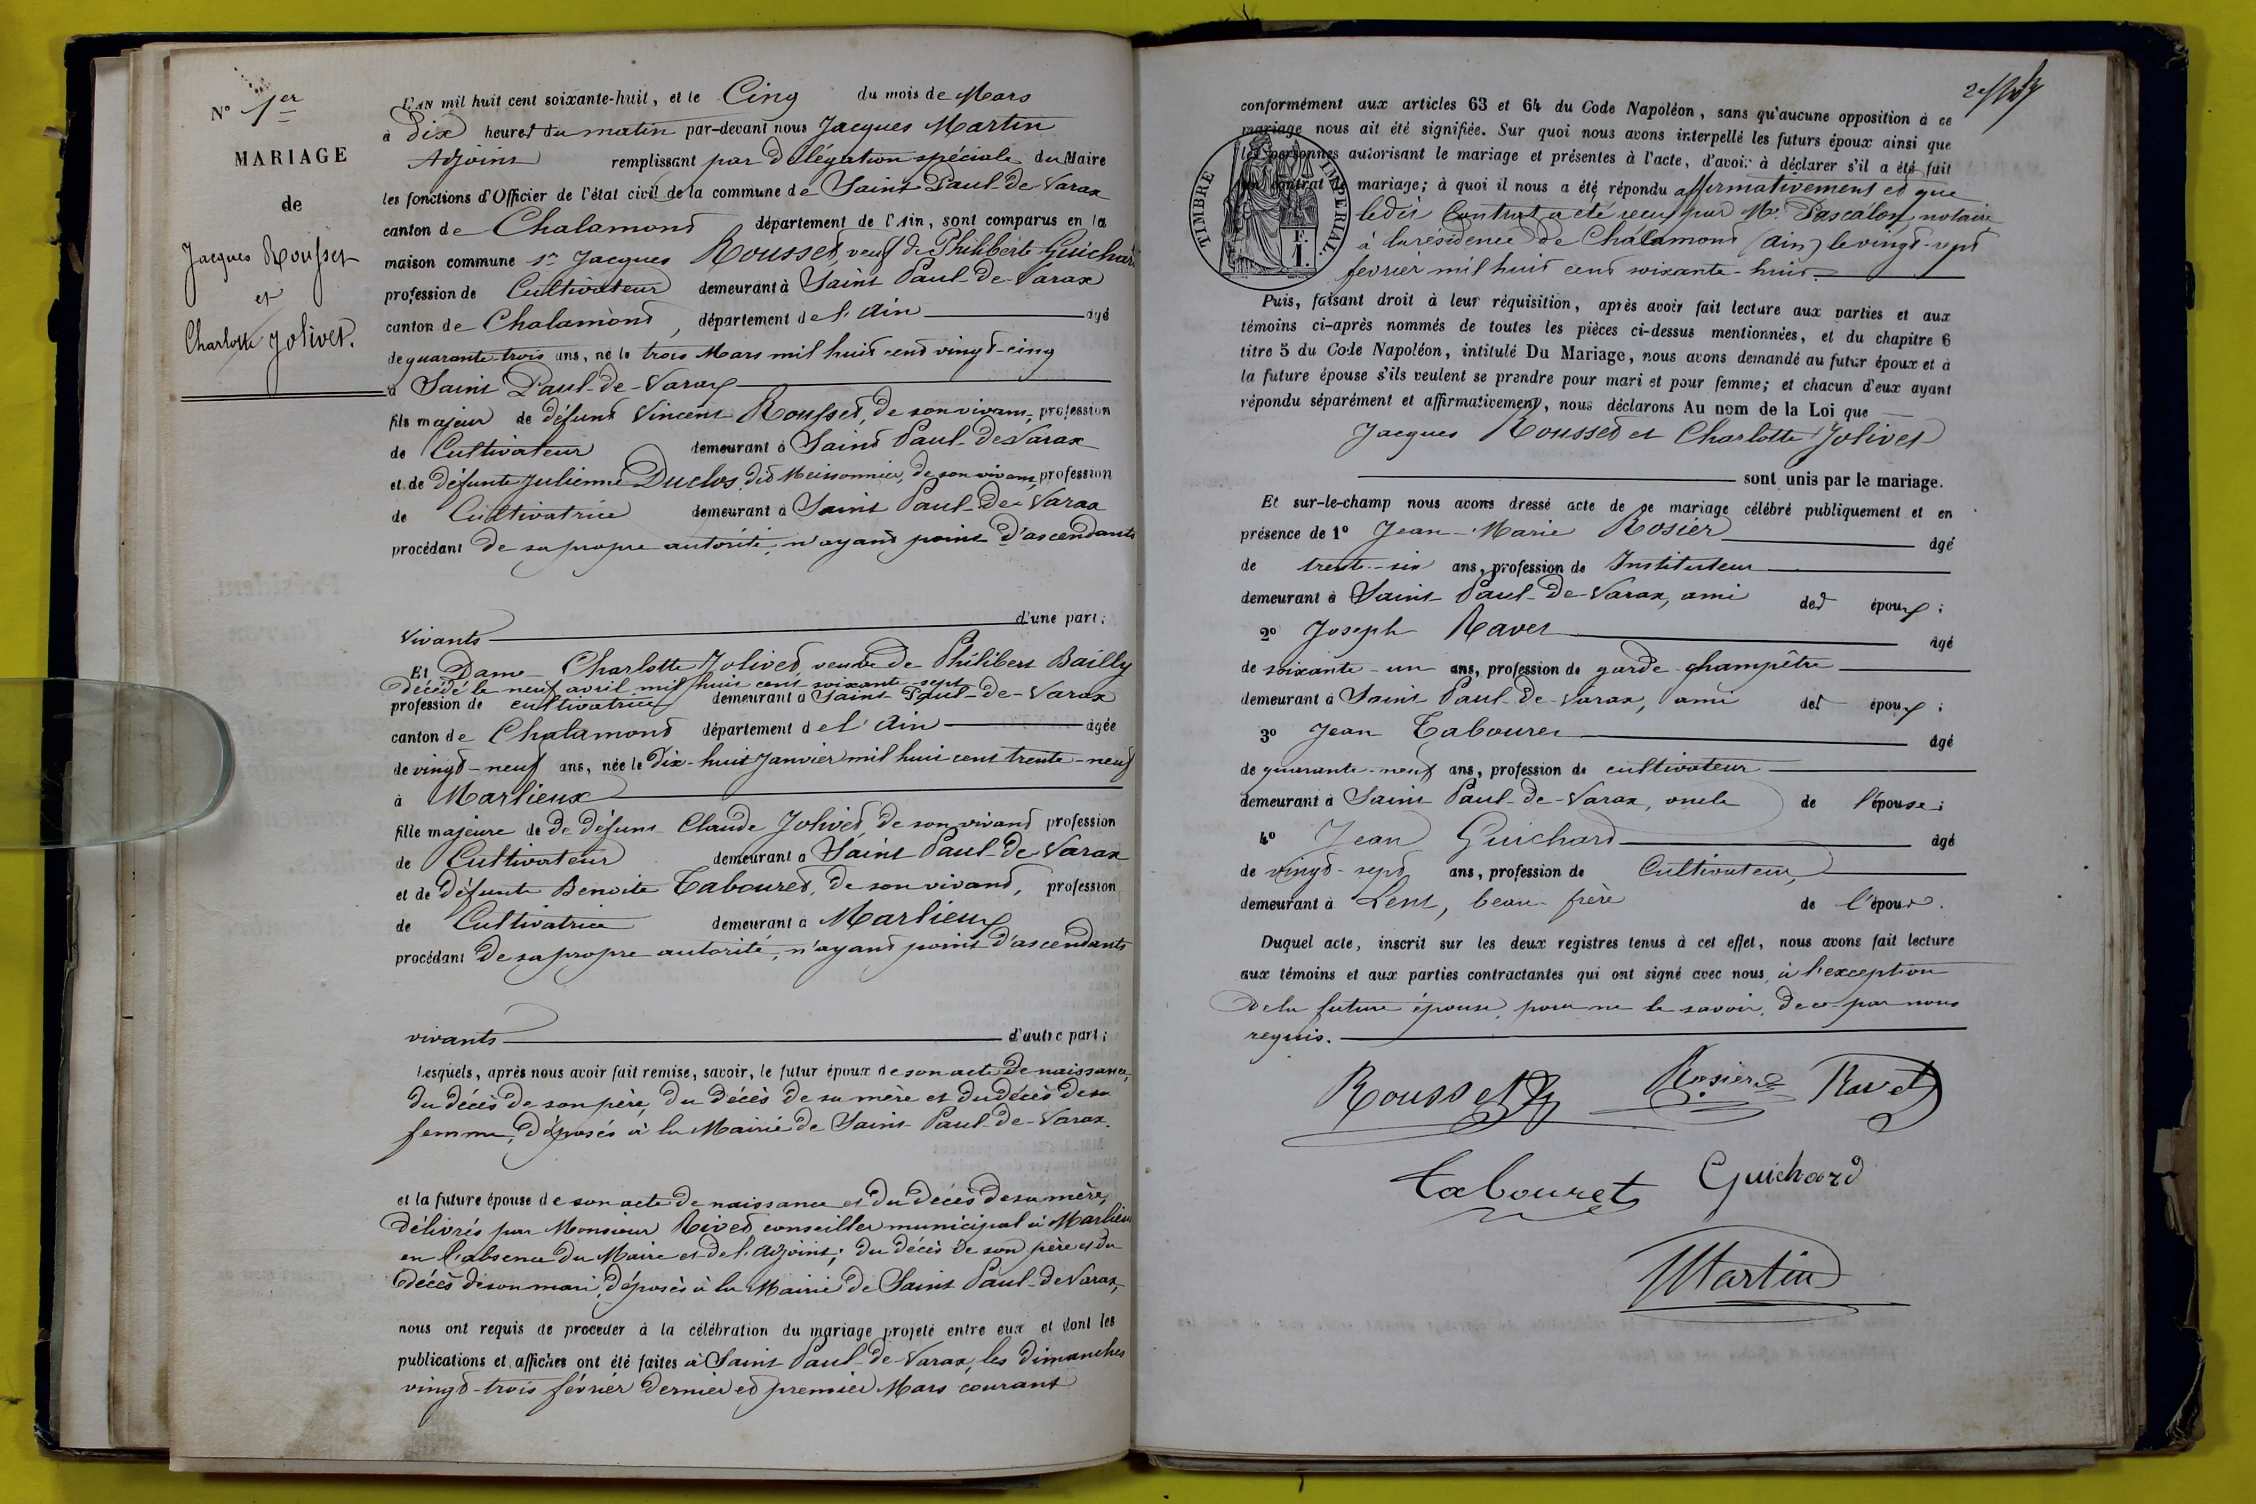 N° 1er
MARIAGE
de
Jacques Rousset
et
Charlotte Jolivet.
L'AN mil huit cent soixante-huit, et le Cinq du mois de Mars
à dix heures du matin par-devant nous Jacques Martin
Adjoint remplissant par délégation spéciale du Maire
les fonctions d'Officier de l'état civil de la commune de Saint Paul-de-Varax
canton de Chalamont département de l'Ain, sont comparus en la
maison commune sr Jacques Rousset, veuf de Philiberte Guichard
profession de Cultivateur demeurant à Saint Paul-de-Varax
canton de Chalamont, département de l'Ain âgé
de quarante trois ans, né le trois Mars mil huit cent vingt-cinq
à Saint Paul-de-Varax
fils majeur de défunt Vincent Rousset, de son vivant, profession
de Cultivateur demeurant à Saint Paul-de Varax
et de défunte Julienne Duclos dit Meissonnier, de son vivant, profession
de Cultivatrice demeurant à Saint Paul-de-Varax
procédant de sa propre autorité, n'ayant point d'ascendants
vivants d'une part;
Et Dame Charlotte Jolivet, veuve de Philibert Bailly
décédé le neuf avril mil huit cent soixante-sept
profession de cultivatrice demeurant à Saint-Paul-de-Varax
canton de Chalamont département de l'Ain âgée
de vingt-neuf ans, née le dix-huit Janvier mil huit cent trente-neuf
à Marlieux
fille majeure de de défunt Claude Jolivet, de son vivant profession
de Cultivateur demeurant à Saint Paul-de Varax
et de défunte Benoite Tabouret, de son vivant, profession
de Cultivatrice demeurant à Marlieux
procédant de sa propre autorité, n'ayant point d'ascendants
vivants d'autre part;
Lesquels, après nous avoir fait remise, savoir, le futur époux de son acte de naissance,
du décès de son père, du décès de sa mère et du décès de sa
femme, déposés à la Mairie de Saint Paul-de-Varax.
et la future épouse de son acte de naissance et du décès de sa mère,
délivrés par Monsieur Rivet conseiller municipal à Marlieux
en l'absence du Maire et de l'adjoint; du décès de son père et du
décès de son mari, déposés à la Mairie de Saint Paul-de Varax,
nous ont requis de procéder à la célébration du mariage projeté entre eux et dont les
publications et affiches ont été faites à Saint Paul-de-Varax, les dimanches
vingt-trois février dernier et premier Mars courant
conformément aux articles 63 et 64 du Code Napoléon, sans qu'aucune opposition à ce
mariage nous ait été signifiée. Sur quoi nous avons interpellé les futurs époux ainsi que
les personnes autorisant le mariage et présentes à l'acte, d'avoir à déclarer s'il a été fait
un contrat de mariage; à quoi il nous a été répondu affirmativement et que
ledit Contrat a été reçu par Me Pascalon, notaire
à la résidence de Chalamont (Ain) le vingt-sept
février mil huit cent soixante-huit.
TIMBRE IMPÉRIAL.
F.
1.
Puis, faisant droit à leur réquisition, après avoir fait lecture aux parties et aux
témoins ci-après nommés de toutes les pièces ci-dessus mentionnées, et du chapitre 6
titre 5 du Code Napoléon, intitulé Du Mariage, nous avons demandé au futur époux et à
la future épouse s'ils veulent se prendre pour mari et pour femme; et chacun d'eux ayant
répondu séparément et affirmativement, nous déclarons Au nom de la Loi que
Jacques Rousset et Charlotte Jolivet
sont unis par le mariage.
Et sur-le-champ nous avons dressé acte de ce mariage célébré publiquement et en
présence de 1° Jean-Marie Rosier âgé
de trente-six ans, profession de Instituteur
demeurant à Saint Paul-de-Varax, ami des époux;
2° Joseph Ravet âgé
de soixante-un ans, profession de garde-champêtre
demeurant à Saint Paul-de-Varax, ami des époux;
3° Jean Tabouret âgé
de quarante-neuf ans, profession de cultivateur
demeurant à Saint Paul-de-Varax, oncle de l'épouse;
4° Jean Guichard âgé
de vingt-sept ans, profession de Cultivateur,
demeurant à Lent, beau-frère de l'époux.
Duquel acte, inscrit sur les deux registres tenus à cet effet, nous avons fait lecture
aux témoins et aux parties contractantes qui ont signé avec nous, à l'exception
de la future épouse, pour ne le savoir, de ce par nous
requis.
Rousset Rosier Ravet
Tabouret Guichard
Martin